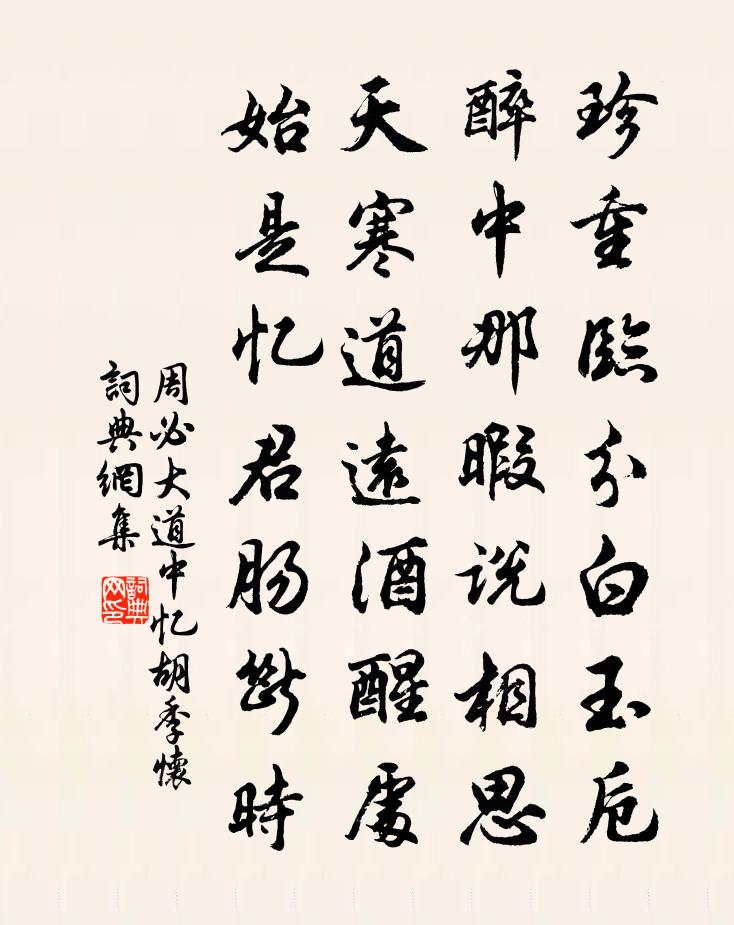 珍重臨分白玉卮
醉中那暇說相思
天寒道遠酒醒處
始是忆君肠斷時
周必大道中忆胡季懷
詞典網集
詞典网印